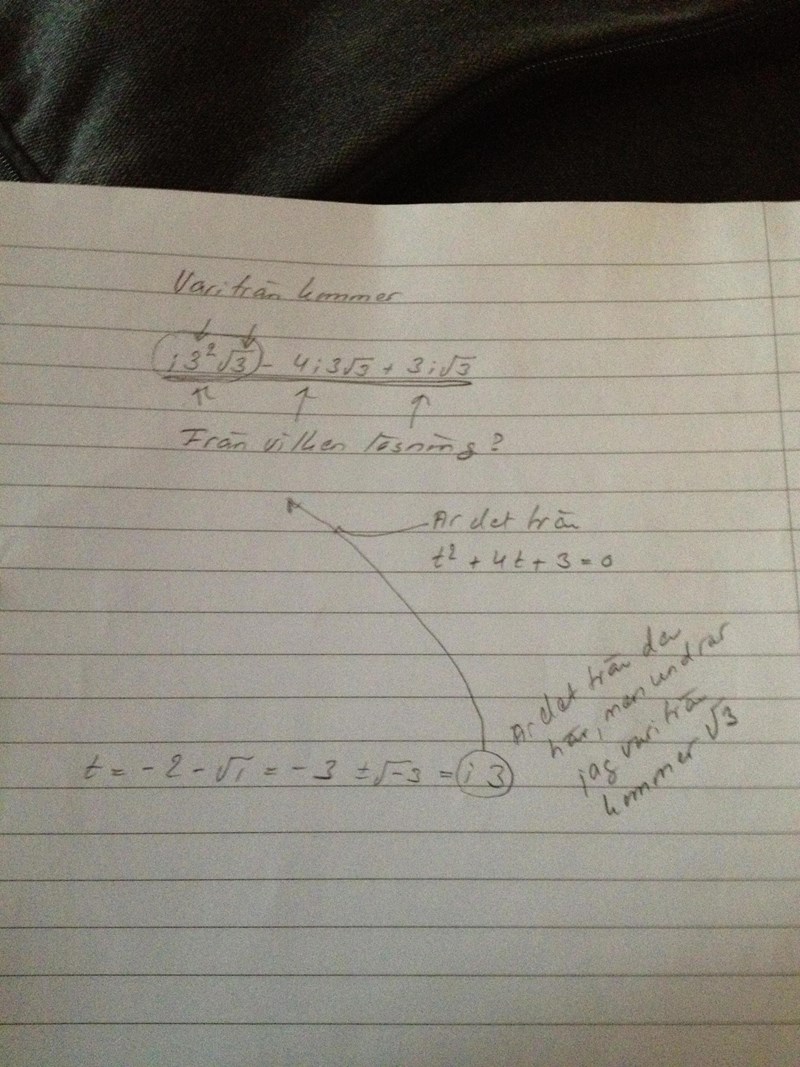 Varifrån kommer
i3²√3 - 4i3√3 + 3i√3
Från vilken lösning?
Är det från
t² + 4t + 3 = 0
Är det från den
här, men undrar
jag varifrån
kommer √3
t = -2 - √1 = -3 ±√-3 = i 3